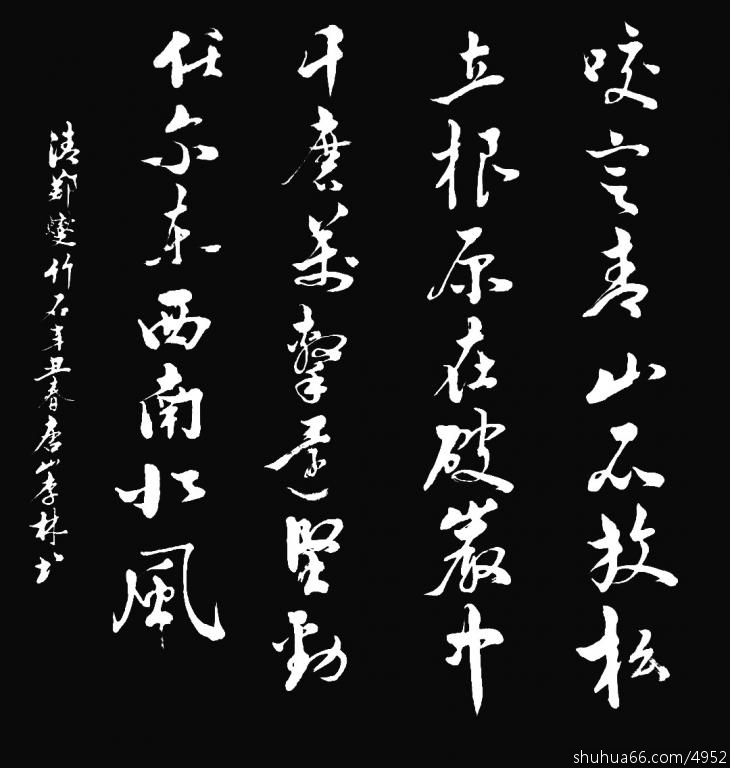 咬定青山不放松
立根原在破巖中
千磨萬擊還堅勁
任尔东西南北風
清鄭燮竹石辛丑春唐山李林书
shuhua66.com/4952